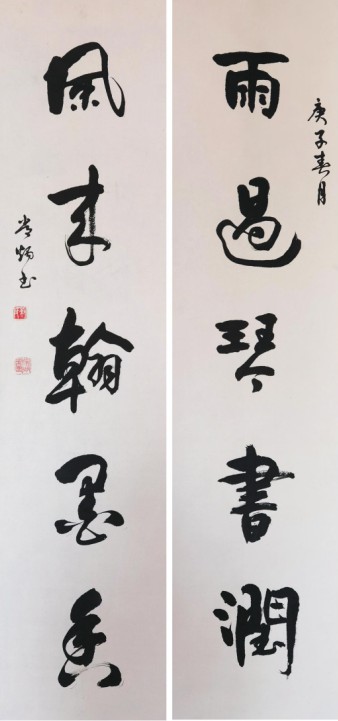 庚子春月
雨過琴書潤
風来翰墨香